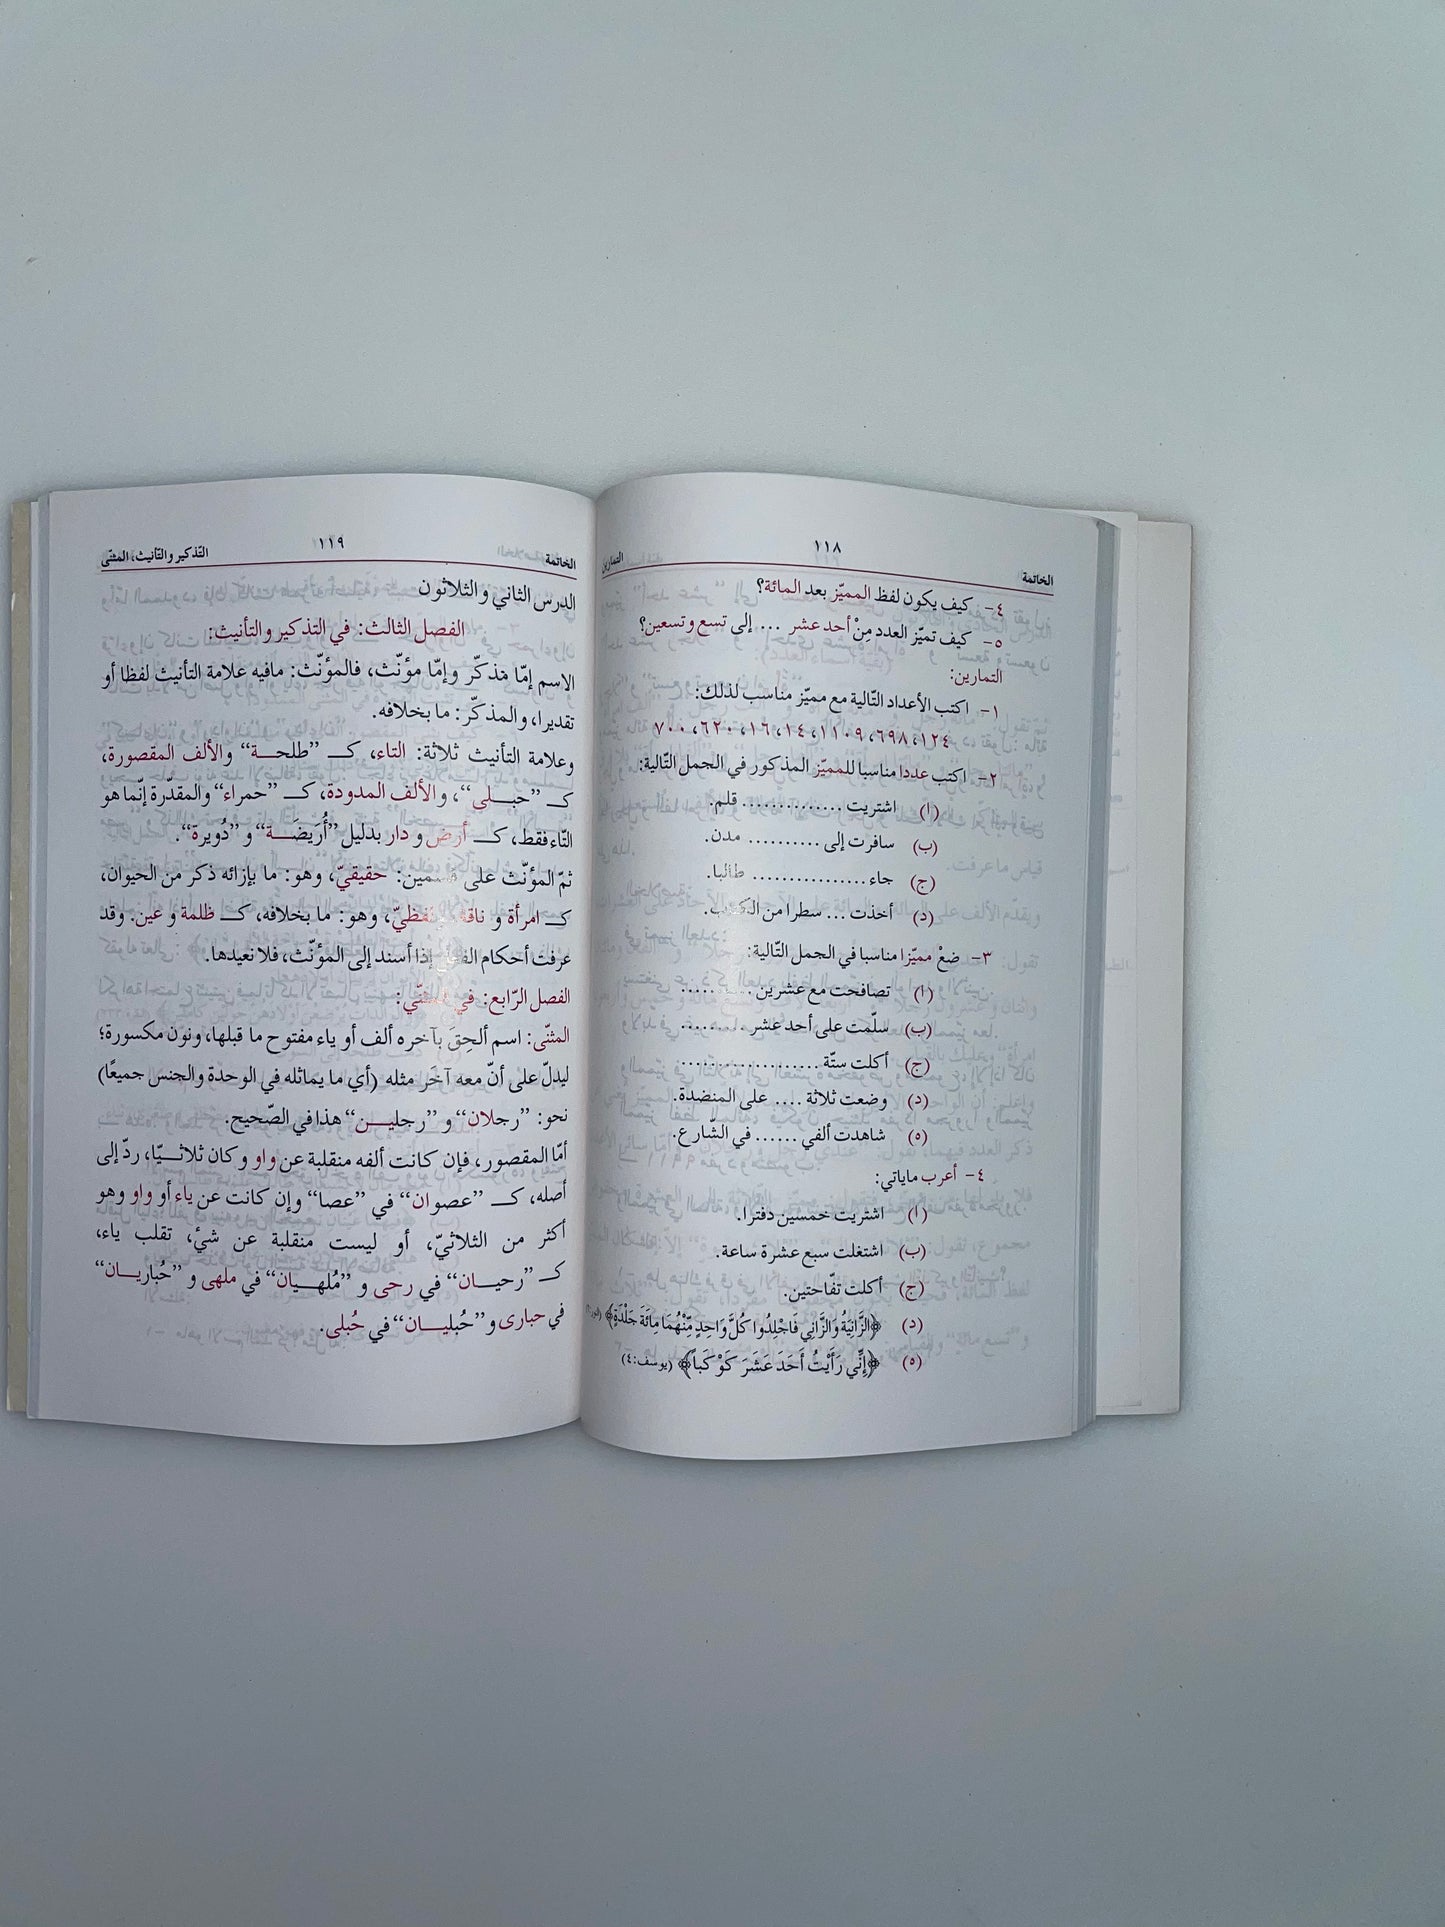 الخاتمة ١١٨ التمارين
٤- كيف يكون لفظ المميّز بعد المائة؟
٥- كيف تميّز العدد مِنْ أحد عشر ... إلى تسع وتسعين؟
التمارين:
١- اكتب الأعداد التّالية مع مميّز مناسب لذلك:
١٢٤، ٦٩٨، ١١٠٩، ١٤، ١٦، ٦٢٠، ٧٠٠
٢- اكتب عددا مناسبا للمميّز المذكور في الجمل التّالية:
(ا) اشتريت .............. قلم.
(ب) سافرت إلى .......... مدن.
(ج) جاء ................ طالبا.
(د) أخذت ... سطرا من الكتاب.
٣- ضعْ مميّزا مناسبا في الجمل التّالية:
(ا) تصافحت مع عشرين ..........
(ب) سلّمت على أحد عشر .........
(ج) أكلت ستّة ...................
(د) وضعت ثلاثة .... على المنضدة.
(ه) شاهدت ألفي ...... في الشّارع.
٤- أعرب ماياتي:
(ا) اشتريت خمسين دفترا.
(ب) اشتغلت سبع عشرة ساعة.
(ج) أكلت تفّاحتين.
(د) ﴿الزَّانِيَةُ وَالزَّانِي فَاجْلِدُوا كُلَّ وَاحِدٍ مِّنْهُمَا مِائَةَ جَلْدَةٍ﴾
(ه) ﴿إِنِّي رَأَيْتُ أَحَدَ عَشَرَ كَوْكَباً﴾ (يوسف:٤)
الخاتمة ١١٩ التّذكير والتّأنيث، المثنّى
الدرس الثاني والثلاثون
الفصل الثالث: في التذكير والتأنيث:
الاسم إمّا مذكّر وإمّا مؤنّث، فالمؤنّث: مافيه علامة التأنيث لفظا أو
تقديرا، والمذكّر: ما بخلافه.
وعلامة التأنيث ثلاثة: التاء، كـ "طلحة" والألف المقصورة،
كـ "حبلى"، والألف الممدودة، كـ "حمراء" والمقدّرة إنّما هو
التّاء فقط، كـ أرض و دار بدليل "أُرَيضَة" و "دُويرة".
ثمّ المؤنّث على قسمين: حقيقيّ، وهو: ما بإزائه ذكر من الحيوان،
كـ امرأة و ناقة ولفظيّ، وهو: ما بخلافه، كـ ظلمة و عين. وقد
عرفت أحكام الفعل إذا أسند إلى المؤنّث، فلا نعيدها.
الفصل الرّابع: في المثنّي:
المثنّى: اسم ألحِقَ بآخره ألف أو ياء مفتوح ما قبلها، ونون مكسورة؛
ليدلّ على أنّ معه آخَر مثله (أي ما يماثله في الوحدة والجنس جميعًا)
نحو: "رجلان" و "رجلين" هذا في الصّحيح.
أمّا المقصور، فإن كانت ألفه منقلبة عن واو وكان ثلاثيّا، ردّ إلى
أصله، كـ "عصوان" في "عصا" وإن كانت عن ياء أو واو وهو
أكثر من الثلاثيّ، أو ليست منقلبة عن شئ، تقلب ياء،
كـ "رحيان" في رحى و "مُلهيان" في ملهى و "حُباريان"
في حبارى و "حُبليان" في حُبلى.